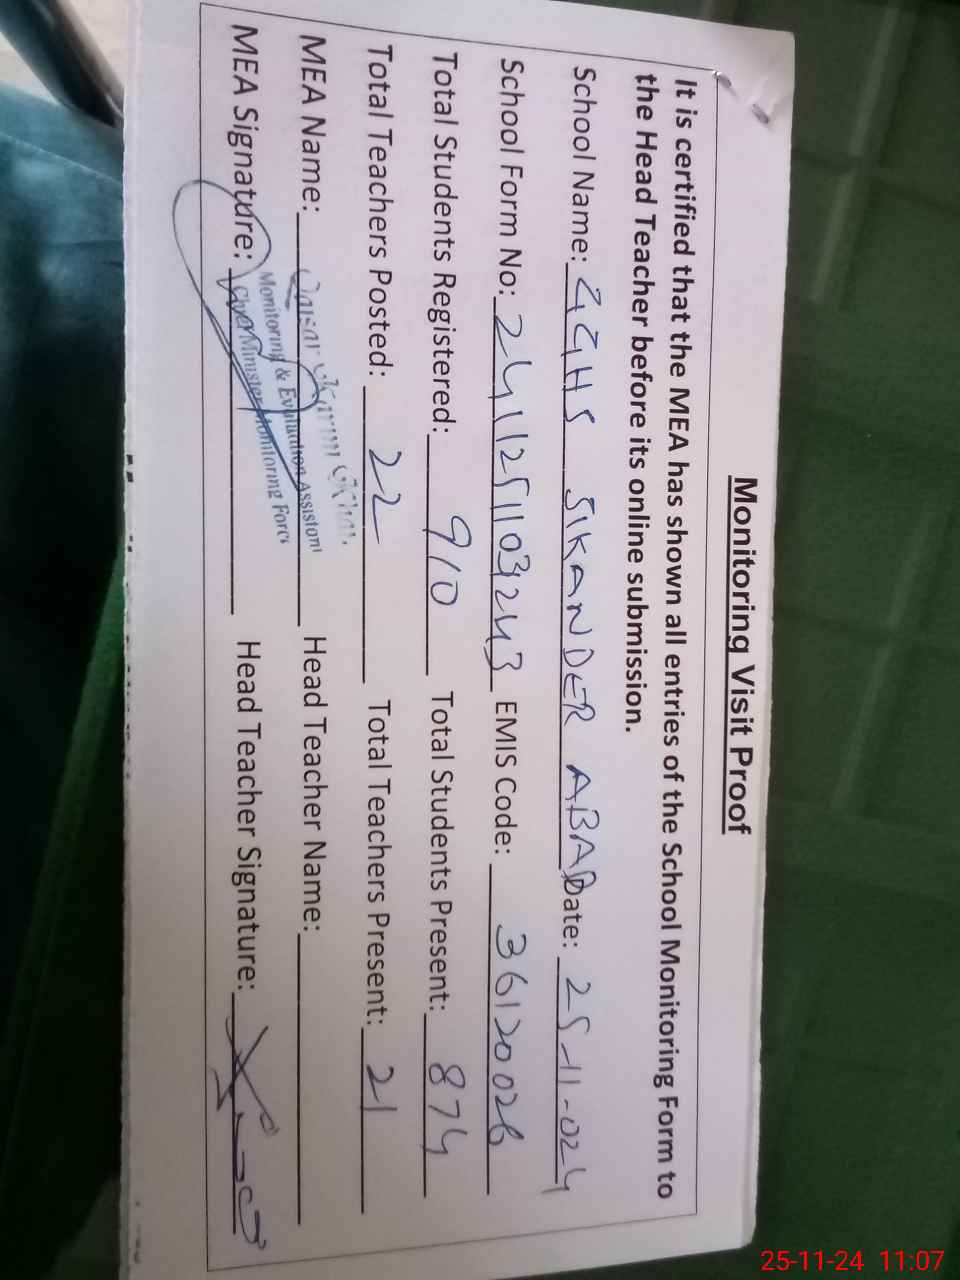 Monitoring Visit Proof
It is certified that the MEA has shown all entries of the School Monitoring Form to
the Head Teacher before its online submission.
School Name: GGHS SIKANDER ABAD Date: 25-11-024
School Form No: 2411251103243 EMIS Code: 36120026
Total Students Registered: 910 Total Students Present: 874
Total Teachers Posted: 22 Total Teachers Present: 21
MEA Name: Qaisar Karim Khan Head Teacher Name:
Monitoring & Evaluation Assistant
Chief Minister Monitoring Force
MEA Signature: Head Teacher Signature:
25-11-24 11:07